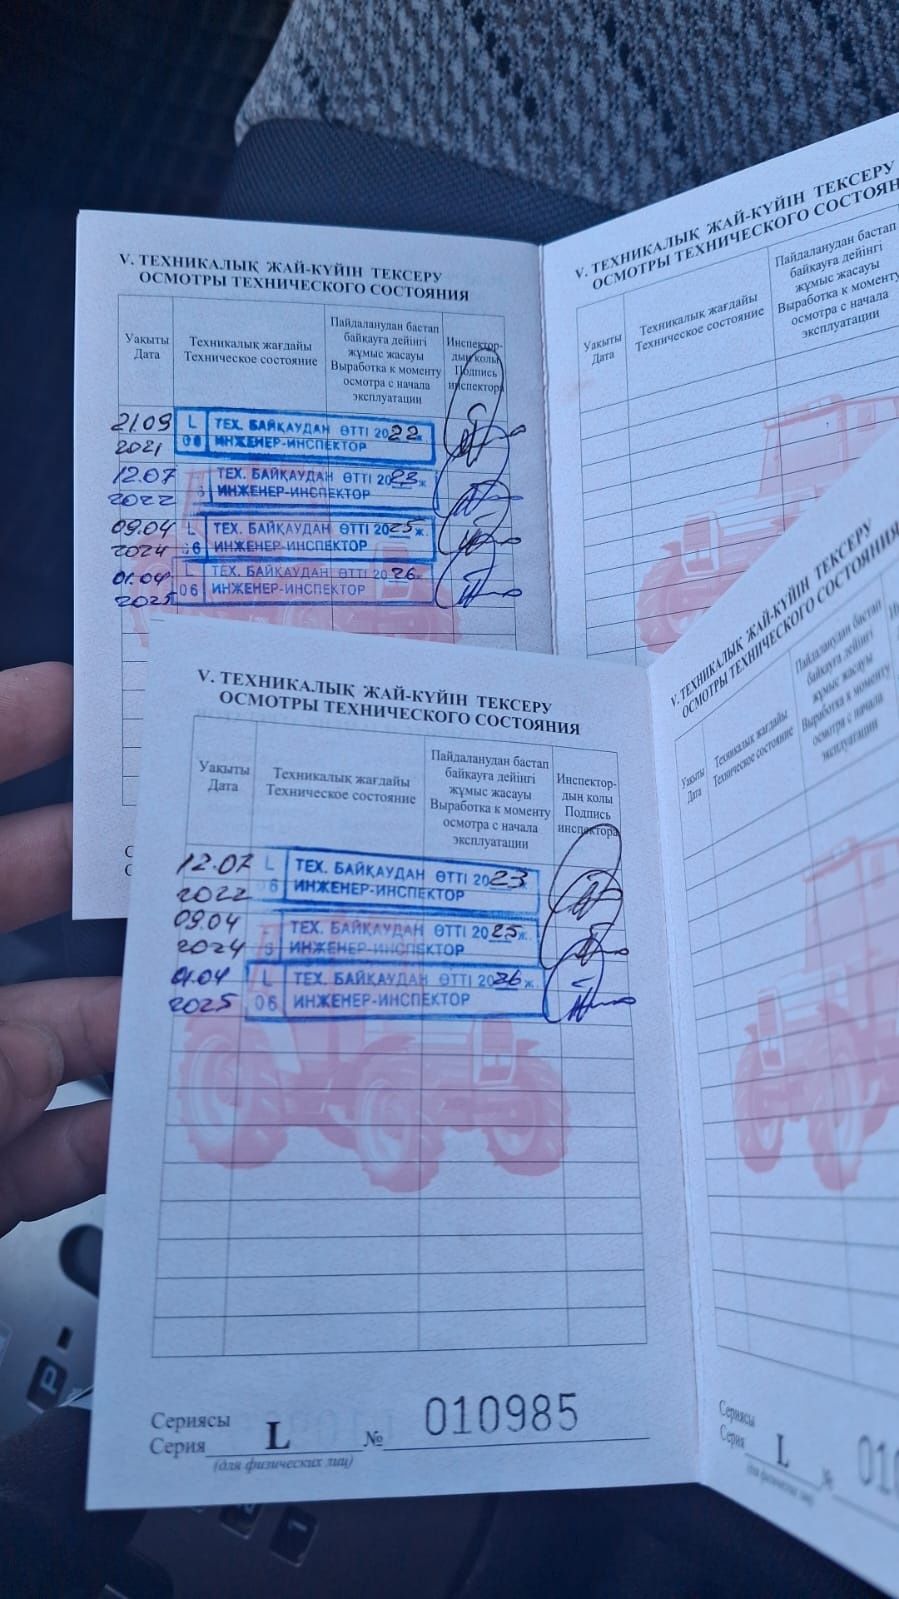 V. ТЕХНИКАЛЫҚ ЖАЙ-КҮЙІН ТЕКСЕРУ
ОСМОТРЫ ТЕХНИЧЕСКОГО СОСТОЯНИЯ
Уақыты
Дата
Техникалық жағдайы
Техническое состояние
Пайдаланудан бастап
байқауға дейінгі
жұмыс жасауы
Выработка к моменту
осмотра с начала
эксплуатации
Инспектор-
дың қолы
Подпись
инспектора
21.09 L ТЕХ. БАЙҚАУДАН ӨТТІ 2022ж.
2021 06 ИНЖЕНЕР-ИНСПЕКТОР
12.07 ТЕХ. БАЙҚАУДАН ӨТТІ 2023ж.
2022 6 ИНЖЕНЕР-ИНСПЕКТОР
09.04 L ТЕХ. БАЙҚАУДАН ӨТТІ 2025ж.
2024 06 ИНЖЕНЕР-ИНСПЕКТОР
01.04 L ТЕХ. БАЙҚАУДАН ӨТТІ 2026ж.
2025 06 ИНЖЕНЕР-ИНСПЕКТОР
V. ТЕХНИКАЛЫҚ ЖАЙ-КҮЙІН ТЕКСЕРУ
ОСМОТРЫ ТЕХНИЧЕСКОГО СОСТОЯН
Уақыты
Дата
Техникалық жағдайы
Техническое состояние
Пайдаланудан бастап
байқауға дейінгі
жұмыс жасауы
Выработка к моменту
осмотра с начала
эксплуатации
V. ТЕХНИКАЛЫҚ ЖАЙ-КҮЙІН ТЕКСЕРУ
ОСМОТРЫ ТЕХНИЧЕСКОГО СОСТОЯНИЯ
Уақыты
Дата
Техникалық жағдайы
Техническое состояние
Пайдаланудан бастап
байқауға дейінгі
жұмыс жасауы
Выработка к моменту
осмотра с начала
эксплуатации
Инспектор-
дың қолы
Подпись
инспектора
12.07 L ТЕХ. БАЙҚАУДАН ӨТТІ 2023ж.
2022 06 ИНЖЕНЕР-ИНСПЕКТОР
09.04 ТЕХ. БАЙҚАУДАН ӨТТІ 2025ж.
2024 6 ИНЖЕНЕР-ИНСПЕКТОР
01.04 L ТЕХ. БАЙҚАУДАН ӨТТІ 2026ж.
2025 06 ИНЖЕНЕР-ИНСПЕКТОР
Сериясы
Серия L № 010985
(для физических лиц)
V. ТЕХНИКАЛЫҚ ЖАЙ-КҮЙІН ТЕКСЕРУ
ОСМОТРЫ ТЕХНИЧЕСКОГО СОСТОЯНИЯ
Уақыты
Дата
Техникалық жағдайы
Техническое состояние
Пайдаланудан бастап
байқауға дейінгі
жұмыс жасауы
Выработка к моменту
осмотра с начала
эксплуатации
Сериясы
Серия L № 010
P
1